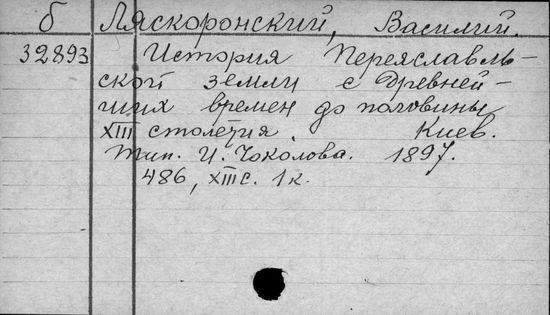 б Ляскоронский, Василий.
32893 История Переяславль-
ской земли с древней-
ших времен до половины
XIII столетия. Киев.
Тип. И. Чоколова. 1897.
486, XIII с. 1 к.